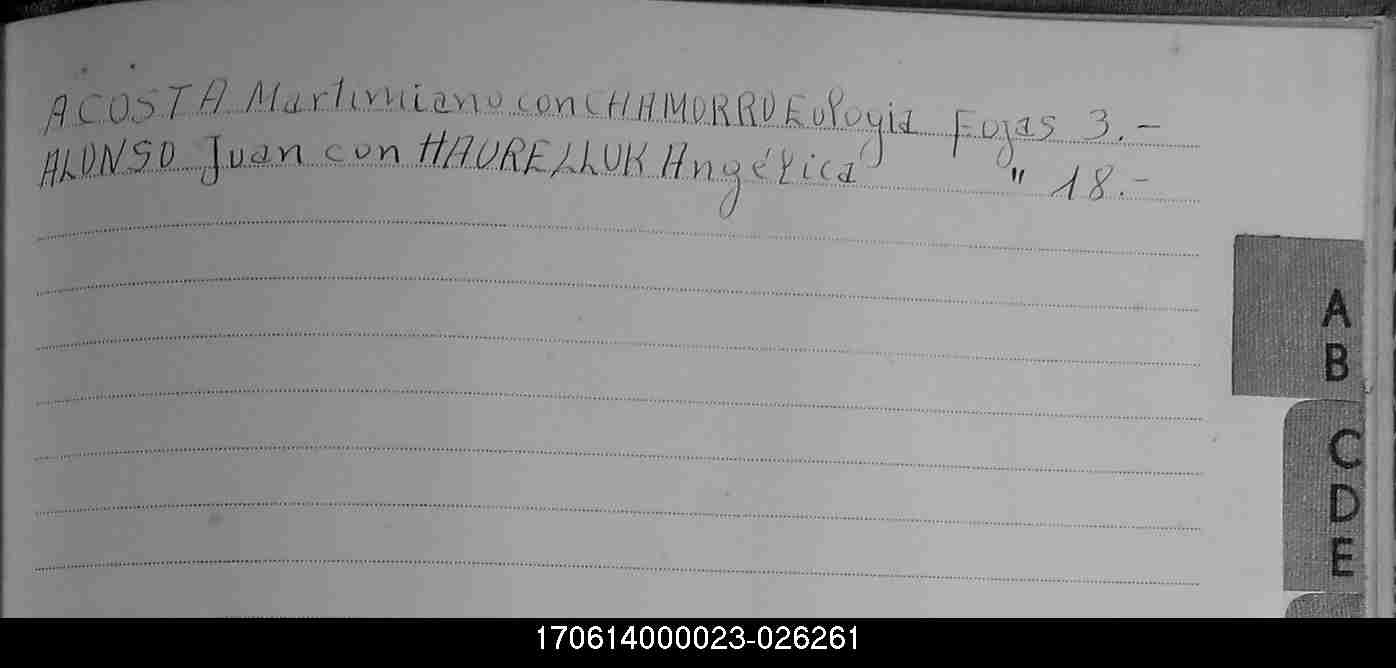 ACOSTA Martimiano con CHAMORRO Eulogia Fojas 3.-
ALONSO Juan con HAURELLUK Angélica " 18.-
A
B
C
D
E
170614000023-026261